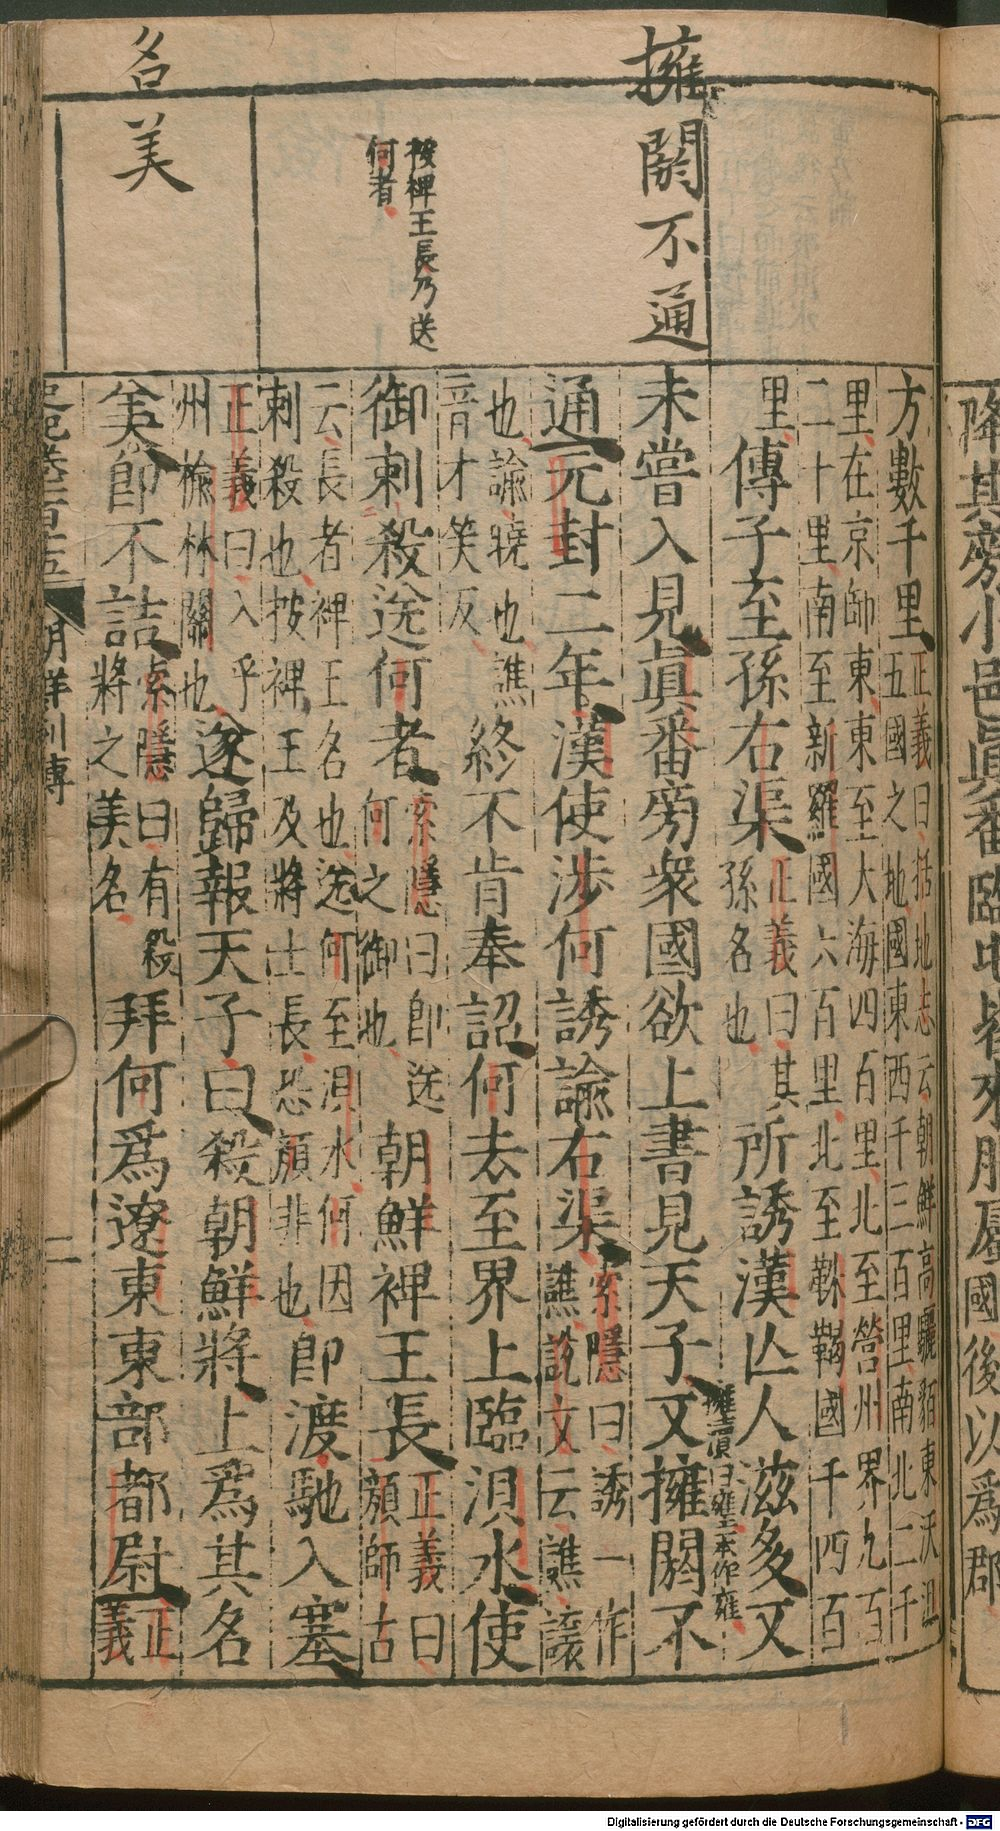 降其旁小邑眞番臨屯皆來服屬國後以爲郡
擁閼不通
按裨王長乃送
何者
名美
方數千里正義曰括地志云朝鮮高驪貊東沃沮
五國之地國東西千三百里南北二千
里在京師東東至大海四百里北至營州界九百
二十里南至新羅國六百里北至靺鞨國千四百
里傳子至孫右渠正義曰其孫名也所誘漢亾人滋多又
一本作雍
未嘗入見眞番旁衆國欲上書見天子又擁閼不
通元封二年漢使涉何誘諭右渠索隱曰誘一作譙說文云譙讓
也諭曉也譙音才笑反終不肯奉詔何去至界上臨浿水使
御刺殺送何者索隱曰卽送何之御也朝鮮裨王長正義曰顏師古
云長者裨王名也送何至浿水何因刺殺也按裨王及將士長恐顏非也卽渡馳入塞
正義曰入乎州楡林關也遂歸報天子曰殺朝鮮將上爲其名
美卽不詰索隱曰有殺將之美名拜何爲遼東東部都尉正義
史記卷一百十五 朝鮮列傳 二
Digitalisierung gefördert durch die Deutsche Forschungsgemeinschaft - DFG